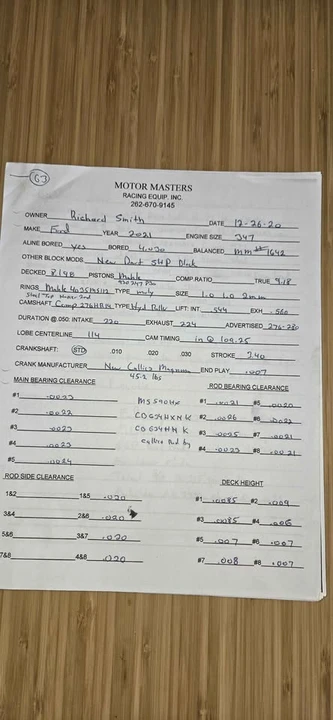 63
MOTOR MASTERS
RACING EQUIP. INC.
262-670-9145
OWNER Richard Smith DATE 12-26-20
MAKE Ford YEAR 2021 ENGINE SIZE 347
ALINE BORED yes BORED 4.030 BALANCED MM# 1642
OTHER BLOCK MODS. New Dart SHP Block
DECKED 8.198 PISTONS Mahle COMP.RATIO TRUE 9.18
930 247 930
RINGS Mahle 4035MS112 TYPE moly SIZE 1.0 1.0 2mm
Steel Top 2nd
CAMSHAFT Comp 276HR14 TYPE Hyd Roller LIFT: INT. .544 EXH .560
DURATION @.050: INTAKE 220 EXHAUST 224 ADVERTISED 276-280
LOBE CENTERLINE 114 CAM TIMING in @ 109.25
CRANKSHAFT: STD .010 .020 .030 STROKE 3.40
CRANK MANUFACTURER New Callies Magnum END PLAY .007
45.2 lbs
MAIN BEARING CLEARANCE ROD BEARING CLEARANCE
#1 .0023 MS590HX #1 .0021 #5 .0020
#2 .0022 CO634HXNK #2 .0026 #6 .0022
#3 .0023 CO634HNK #3 .0025 #7 .0021
#4 .0023 callies Rod by #4 .0023 #8 .0021
#5 .0024
ROD SIDE CLEARANCE DECK HEIGHT
1&2 1&5 .020 #1 .0085 #2 .009
3&4 2&6 .020 #3 .0085 #4 .006
5&6 3&7 .020 #5 .007 #6 .007
7&8 4&8 .020 #7 .008 #8 .007